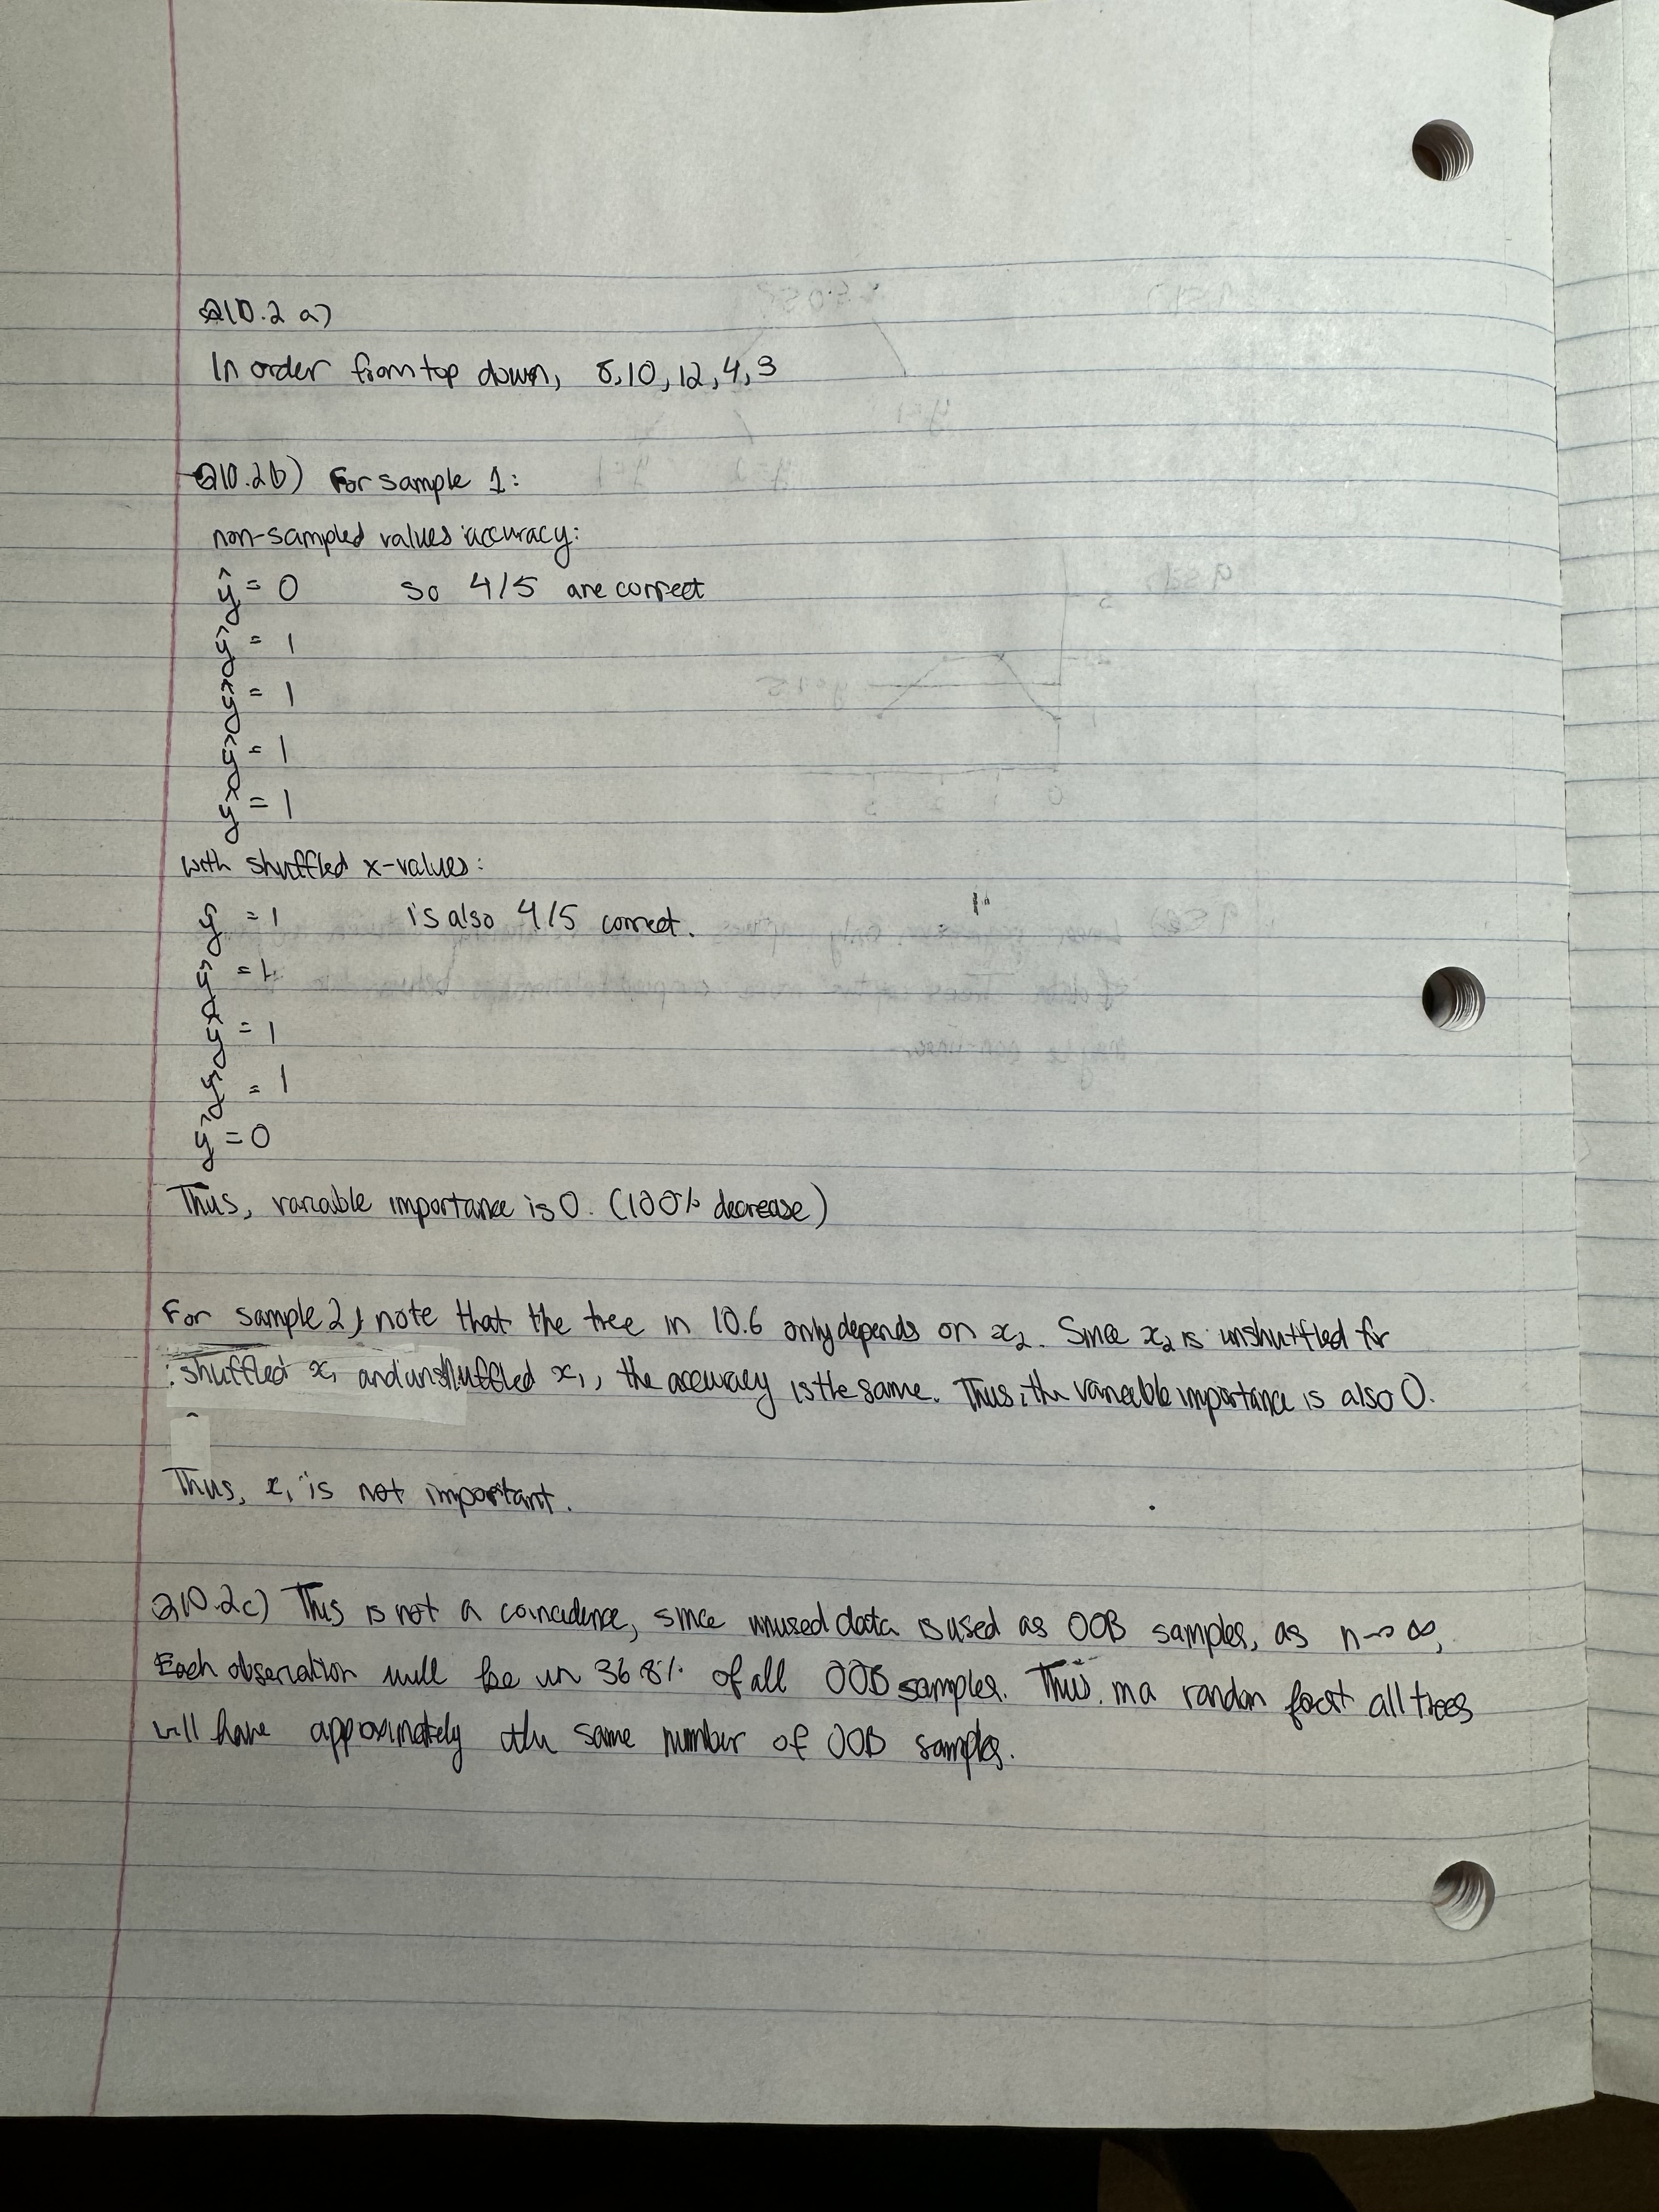 Q10.2 a)
In order from top down, 8,10,12,4,3
Q10.2b) For sample 1:
non-sampled values accuracy:
ŷ = 0 so 4/5 are correct
ŷ = 1
ŷ = 1
ŷ = 1
ŷ = 1
with shuffled x-values:
ŷ = 1 is also 4/5 correct.
ŷ = 1
ŷ = 1
ŷ = 1
ŷ = 0
Thus, variable importance is 0. (100% decrease)
For sample 2, note that the tree in 10.6 only depends on x₂. Since x₂ is unshuffled for
shuffled x₁ and unshuffled x₁, the accuracy is the same. Thus, the variable importance is also 0.
Thus, x₁ is not important.
Q10.2c) This is not a coincidence, since unused data is used as OOB samples, as n→∞,
Each observation will be in 36.8% of all OOB samples. Thus, in a random forest all trees
will have approximately the same number of OOB samples.